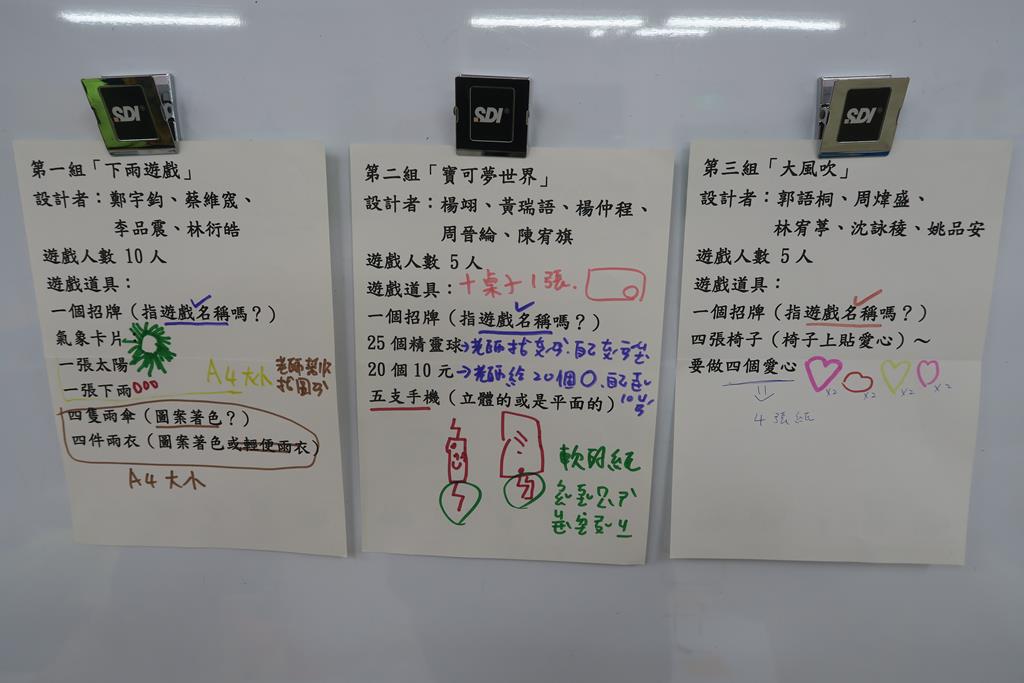 SDI
第一組「下雨遊戲」
設計者：鄭宇鈞、蔡維宬、
李品震、林衍皓
遊戲人數 10 人
遊戲道具：
一個招牌（指遊戲名稱嗎？）
氣象卡片
一張太陽
一張下雨
A4 大小
老師幫忙
找圖分
四隻雨傘（圖案著色？）
四件雨衣（圖案著色或輕便雨衣）
A4 大小
SDI
第二組「寶可夢世界」
設計者：楊翊、黃瑞語、楊仲程、
周晉綸、陳宥旗
遊戲人數 5 人
遊戲道具：＋桌子 1 張.
一個招牌（指遊戲名稱嗎？）
25 個精靈球
20 個 10 元→老師給 20 個
五支手機（立體的或是平面的）
軟的紙
SDI
第三組「大風吹」
設計者：郭語桐、周煒盛、
林宥葶、沈詠稜、姚品安
遊戲人數 5 人
遊戲道具：
一個招牌（指遊戲名稱嗎？）
四張椅子（椅子上貼愛心）～
要做四個愛心
x2 x2 x2 x2
4 張紙